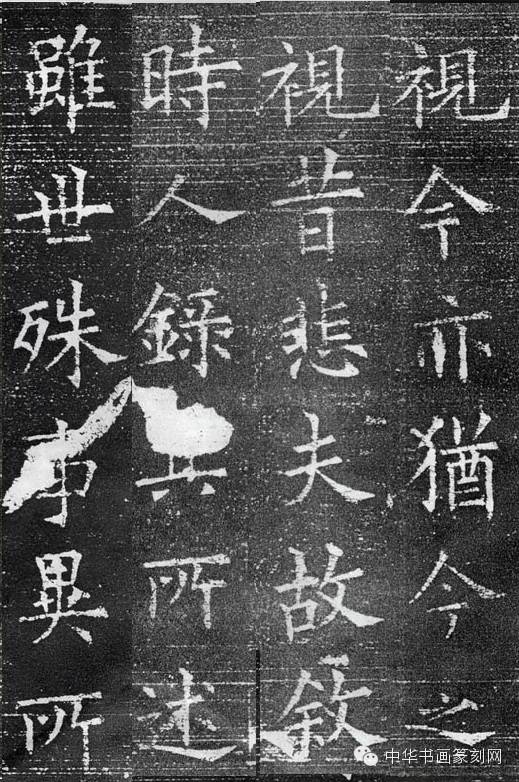 視今亦猶今之
視昔悲夫故敘
時人錄其所述
雖世殊事異所
中华书画篆刻网